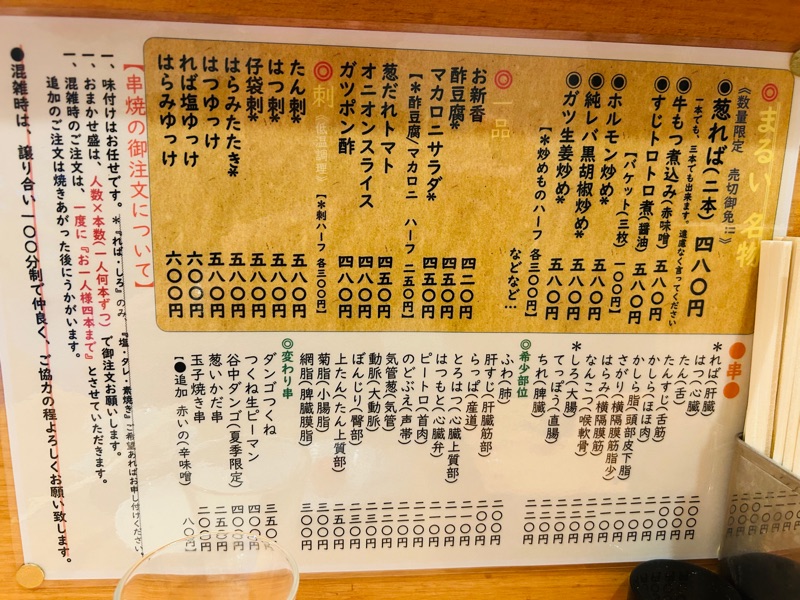 ◎まるい 名物
《数量限定 売切御免!!》
●葱れば(二本) 四八〇円
一本でも、三本でも出来ます。遠慮なく言ってください
●牛もつ煮込み(赤味噌) 五八〇円
●すじトロトロ煮(醤油) 五八〇円
【バケット(三枚) 一〇〇円】
●ホルモン炒め* 五八〇円
●純レバ黒胡椒炒め* 五八〇円
●ガツ生姜炒め* 五八〇円
【*炒めものハーフ 各三〇〇円】
などなど…
◎一品
お新香 四二〇円
酢豆腐* 四五〇円
マカロニサラダ* 四五〇円
【*酢豆腐/マカロニ ハーフ 二五〇円】
葱だれトマト 四五〇円
オニオンスライス 四八〇円
ガツポン酢 四八〇円
◎刺《低温調理》
【*刺ハーフ 各三〇〇円】
たん刺* 五八〇円
はつ刺* 五八〇円
仔袋刺* 五八〇円
はらみたたき* 五八〇円
はつゆっけ 五八〇円
れば塩ゆっけ 六〇〇円
はらみゆっけ 六〇〇円
●串●
*れば(肝臓)
はつ(心臓)
たん(舌)
たんすじ(舌筋)
かしら(ほほ肉)
かしら脂(頭部皮下脂)
さがり(横隔膜筋)
はらみ(横隔膜筋脂少)
なんこつ(喉軟骨)
*しろ(大腸)
てっぽう(直腸)
ちれ(脾臓)
◎希少部位
ふわ(肺)
肝すじ(肝臓筋部)
らっぱ(産道)
とろはつ(心臓上質部)
はつもと(心臓弁)
ピートロ(首肉)
のどぶえ(声帯)
気管葱(気管)
動脈(大動脈)
ぼんじり(臀部)
上たん(たん上質部)
菊脂(小腸脂)
網脂(脾臓膜脂)
◎変わり串
ダンゴつくね 三五〇円
つくね生ピーマン 四〇〇円
谷中ダンゴ(夏季限定) 四〇〇円
葱いかだ串 二五〇円
玉子焼き串 二〇〇円
【●追加 赤いの(辛味噌) 八〇円】
【串焼の御注文について】
一、味付けはお任せです。*『れば・しろ』のみ、『塩・タレ、素焼き』ご希望あればお申し付けください。
一、おまかせ盛は、人数×本数(一人何本ずつ)で御注文お願いします。
一、混雑時のご注文は、一度に『お一人様四本まで』とさせていただきます。
追加のご注文は焼きあがった後にうかがいます。
●混雑時は、譲り合い一〇〇分制で仲良く、ご協力の程よろしくお願い致します。